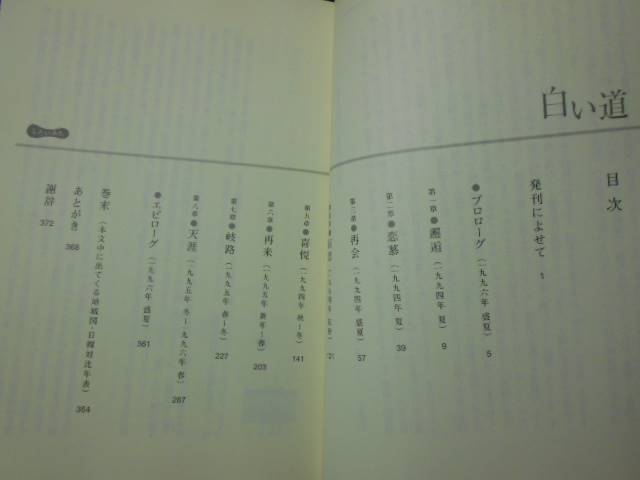 白い道
目次
発刊によせて 1
●プロローグ(一九九六年 盛夏) 5
第一章●邂逅(一九九四年 夏) 9
第二章●恋慕(一九九四年 夏) 39
第三章●再会(一九九四年 盛夏) 57
第五章●喜悦(一九九四年 秋〜冬) 141
第六章●再来(一九九五年 新年〜春) 203
第七章●岐路(一九九五年 春〜冬) 227
第八章●天涯(一九九五年 冬〜一九九六年 春) 287
●エピローグ(一九九六年 盛夏) 361
巻末(本文中に出てくる地域図・日韓対比年表) 364
あとがき 368
謝辞 372